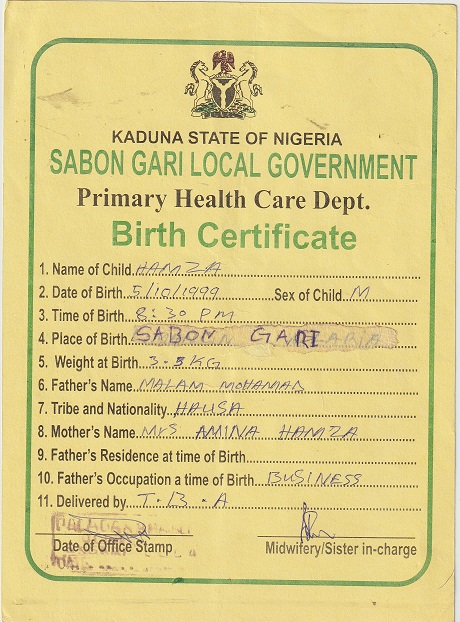 KADUNA STATE OF NIGERIA
SABON GARI LOCAL GOVERNMENT
Primary Health Care Dept.
Birth Certificate
1. Name of Child HAMZA
2. Date of Birth 5/10/1999 Sex of Child M
3. Time of Birth 8:30 PM
4. Place of Birth SABON GARI
5. Weight at Birth 3.5KG
6. Father's Name MALAM MOHAMAN
7. Tribe and Nationality HAUSA
8. Mother's Name MRS AMINA HAMZA
9. Father's Residence at time of Birth
10. Father's Occupation a time of Birth BUSINESS
11. Delivered by T.B.A
Date of Office Stamp Midwifery/Sister in-charge